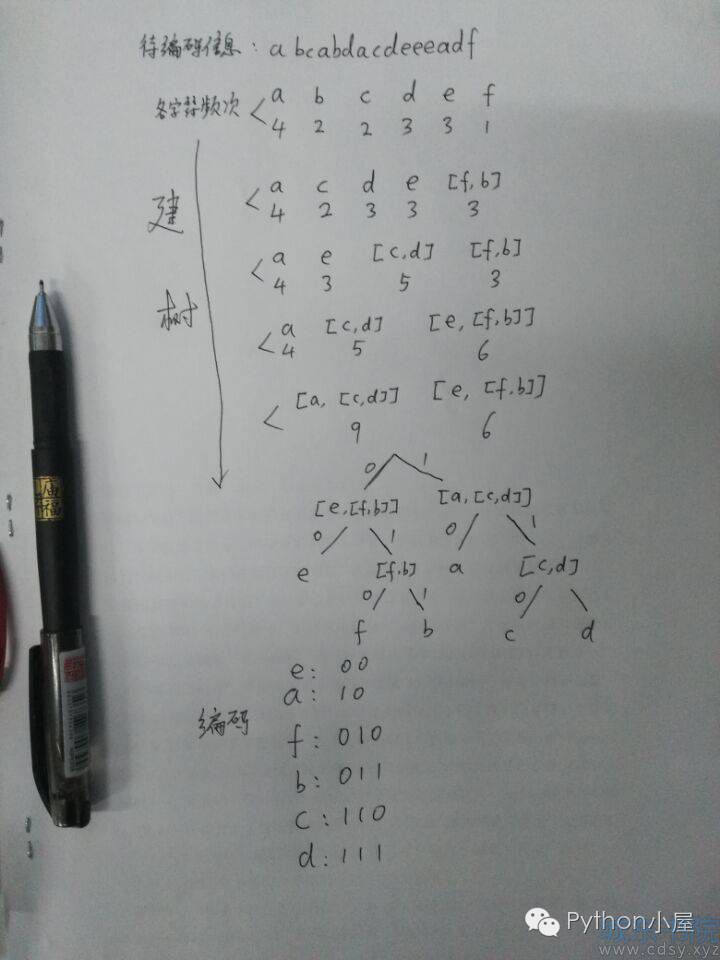 待编码信息: abcabdacdeeeadf
各字符频次 < a b c d e f
4 2 2 3 3 1
建树
< a c d e [f,b]
4 2 3 3 3
< a e [c,d] [f,b]
4 3 5 3
< a [c,d] [e,[f,b]]
4 5 6
< [a,[c,d]] [e,[f,b]]
9 6
0 1
[e,[f,b]] [a,[c,d]]
0 1 0 1
e [f,b] a [c,d]
0 1 0
f b c d
编码
e: 00
a: 10
f: 010
b: 011
c: 110
d: 111
Python小屋
www.cdsy.xyz